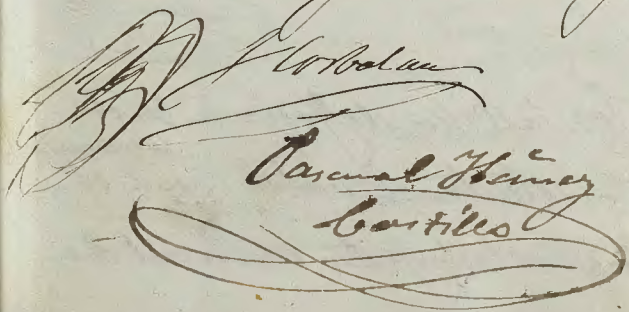 J Corbalan
Pascual Ibañez
Castillo